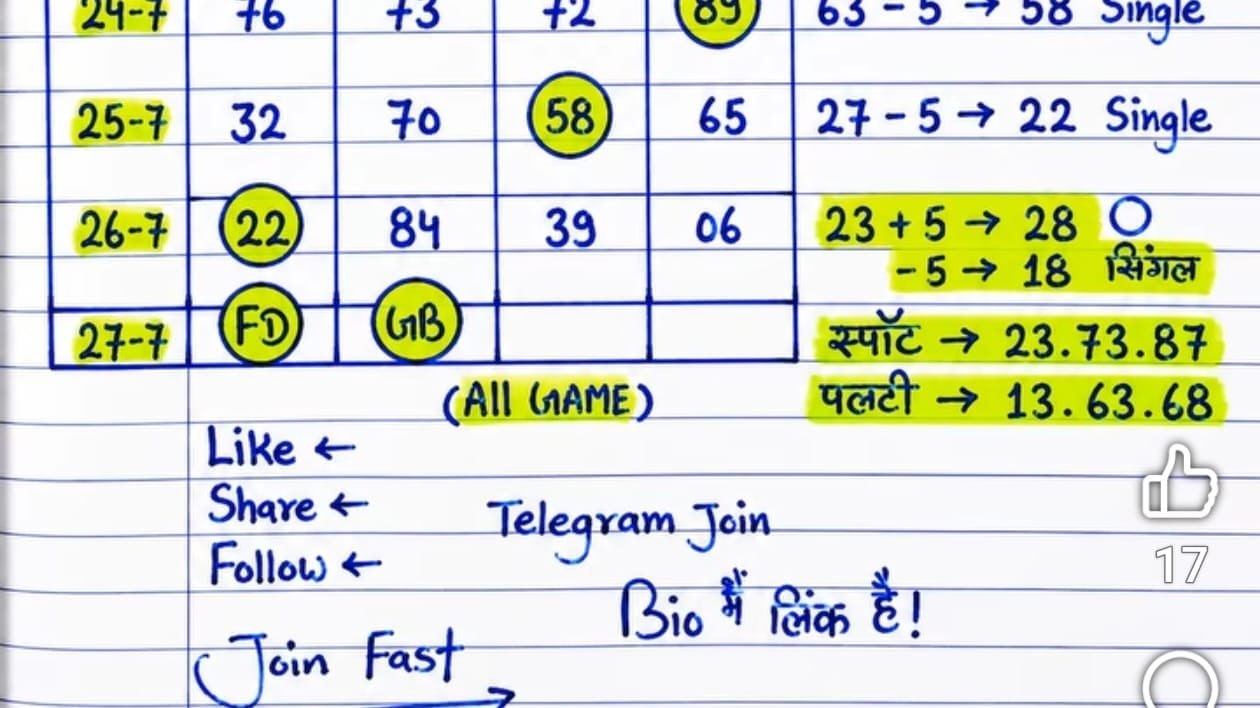 24-7 76 73 72 89 63 - 5 → 58 Single
25-7 32 70 58 65 27 - 5 → 22 Single
26-7 22 84 39 06 23 + 5 → 28
- 5 → 18 सिंगल
27-7 FD GB स्पॉट → 23.73.87
(All GAME) पलटी → 13.63.68
Like ←
Share ← Telegram Join
Follow ←
17
Bio में लिंक है!
Join Fast